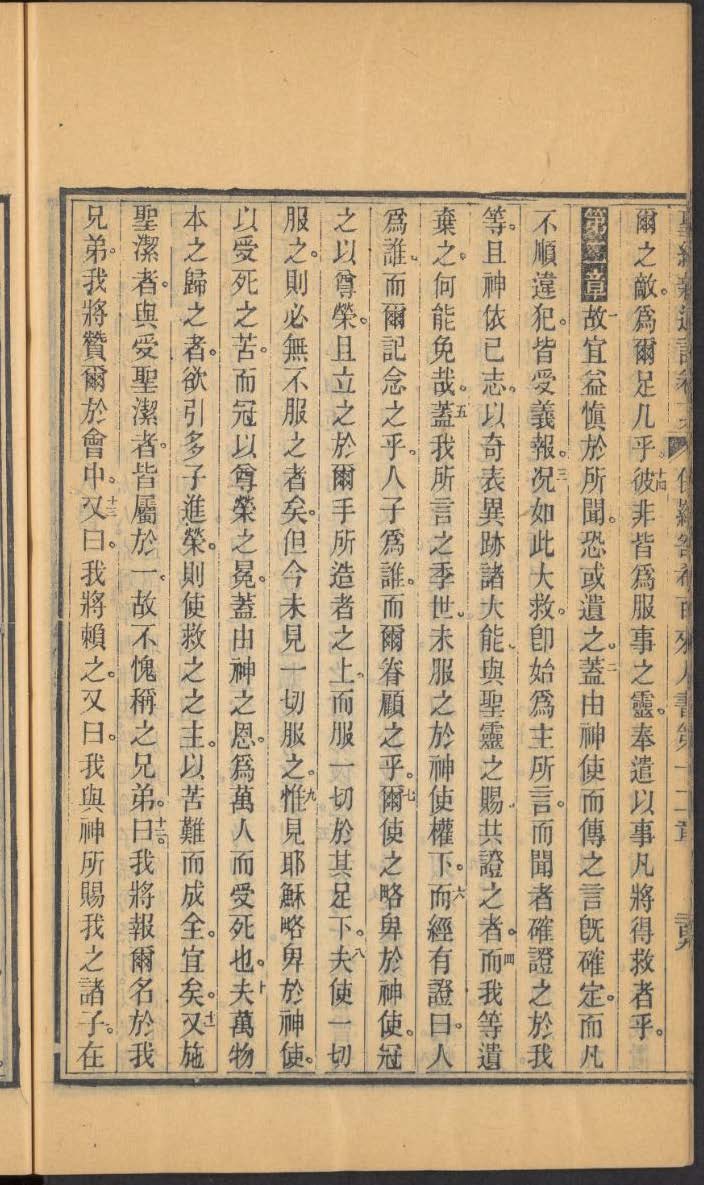 爾之敵。爲爾足几乎。十四彼非皆爲服事之靈。奉遣以事凡將得救者乎。
第二章一故宜益愼於所聞。恐或遺之。二蓋由神使而傳之言旣確定。而凡
不順違犯。皆受義報。三况如此大救。卽始爲主所言。而聞者確證之於我
等。且神依已志。以奇表異跡諸大能、與聖靈之賜、共證之者。四而我等遺
棄之。何能免哉。五蓋我所言之季世、未服之於神使權下。六而經有證曰。人
爲誰、而爾記念之乎。人子爲誰。而爾眷顧之乎。七爾使之略卑於神使。冠
之以尊榮。且立之於爾手所造者之上、而服一切於其足下。八夫使一切
服之。則必無不服之者矣。但今未見一切服之。九惟見耶穌略卑於神使。
以受死之苦。而冠以尊榮之冕。蓋由神之恩。爲萬人而受死也。十夫萬物
本之歸之者。欲引多子進榮。則使救之之主。以苦難而成全。宜矣。十一又施
聖潔者。與受聖潔者。皆屬於一。故不愧稱之兄弟。十二曰。我將報爾名於我
兄弟。我將贊爾於會中。十三又曰。我將賴之。又曰。我與神所賜我之諸子。在